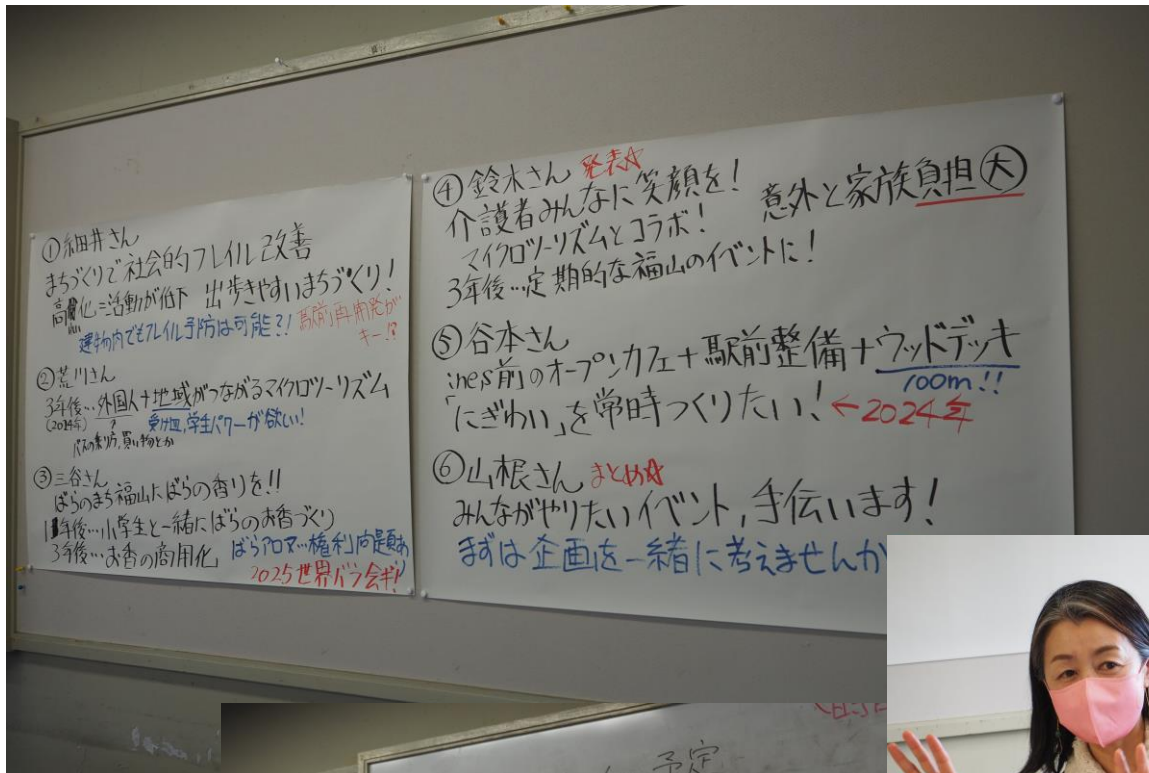 ①細井さん
まちづくりで社会的フレイル改善
高齢化=活動が低下 出歩きやすいまちづくり!
建物内でもフレイル予防は可能?! 駅前再開発が
キー!?
②荒川さん
3年後…外国人+地域がつながるマイクロツーリズム
(2024年) ? 受け皿,学生パワーが欲しい!
バスの乗り方,買い物とか
③三谷さん
ばらのまち福山にばらの香りを!!
1年後…小学生と一緒にばらのお香づくり
3年後…お香の商用化 ばらアロマ…権利問題あり
2025世界バラ会議!
④鈴木さん 発表☆
介護者みんなに笑顔を! 意外と家族負担大
マイクロツーリズムとコラボ!
3年後…定期的な福山のイベントに!
⑤谷本さん
ines前のオープンカフェ+駅前整備+ウッドデッキ
100m!!
「にぎわい」を常時つくりたい!←2024年
⑥山根さん まとめ☆
みんながやりたいイベント,手伝います!
まずは企画を一緒に考えませんか
予定